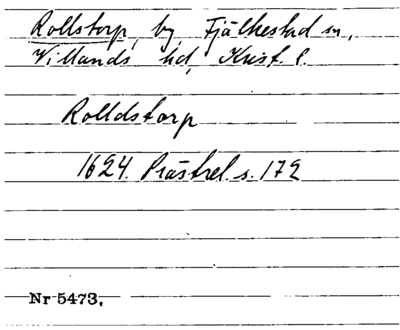 Rollstorp, by Fjälkestad sn,
Villands hd, Krist. l.
Rolldstorp
1624. Prästrel. s. 172
Nr 5473.